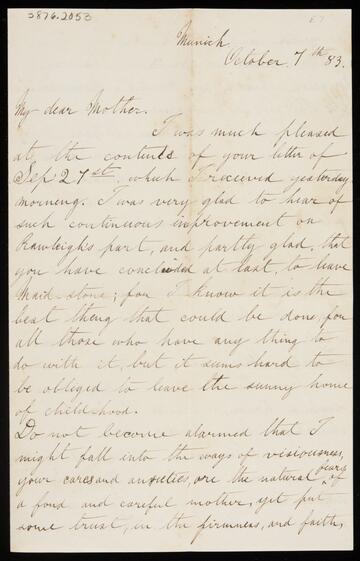 3876.2053
E7
Munich,
October, 7th 83.
My dear Mother.
I was much pleased
at, the contents of your letter of
Sep 27st, which I received yesterday
morning. I was very glad to hear of
such continuous improvement on
Rawleigh's part, and partly glad, that
you have concluded at last, to leave
Maid-stone; for I know it is the
best thing that could be done, for
all those who have any thing to
do with it, but it sums hard to
be obliged to leave the sunny home
of childhood.
Do not become alarmed that I
might fall into the ways of visiousness,
your cares and anxieties, are the natural fears of
a fond and careful mother, yet put
some trust, in the firmness, and faith,